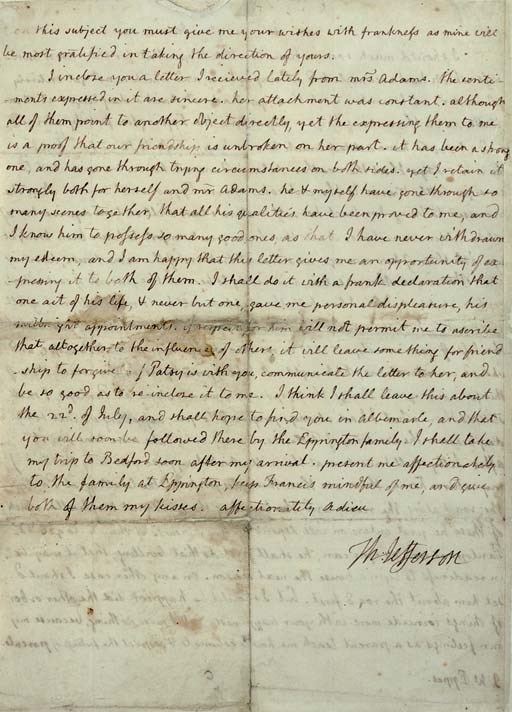 this subject you must give me your wishes with frankness as mine will
be most gratified in taking the direction of yours.
I inclose you a letter I recieved lately from mrs Adams. the senti-
ments expressed in it are sincere. her attachment was constant. although
all of them point to another object directly, yet the expressing them to me
is a proof that our friendship is unbroken on her part. it has been a strong
one, and has gone through trying circumstances on both sides. yet I retain it
strongly both for herself and mr Adams. he & myself have gone through so
many scenes together, that all his qualities have been proved to me, and
I know him to possess so many good ones, as that I have never withdrawn
my esteem, and I am happy that this letter gives me an opportunity of ex-
pressing it to both of them. I shall do it with a frank declaration that
one act of his life, & never but one, gave me personal displeasure, his
midnight appointments. if respect for him will not permit me to ascribe
that altogether to the influence of others, it will leave something for friend
-ship to forgive. if Patsy is with you, communicate the letter to her, and
be so good as to re inclose it to me. I think I shall leave this about
the 22d. of July, and shall hope to find you in Albemarle, and that
you will soon be followed there by the Eppington family. I shall take
my trip to Bedford soon after my arrival. present me affectionately
to the family at Eppington, keep Francis mindful of me, and give
both of them my kisses. affectionately Adieu
Th: Jefferson
J. W. Eppes